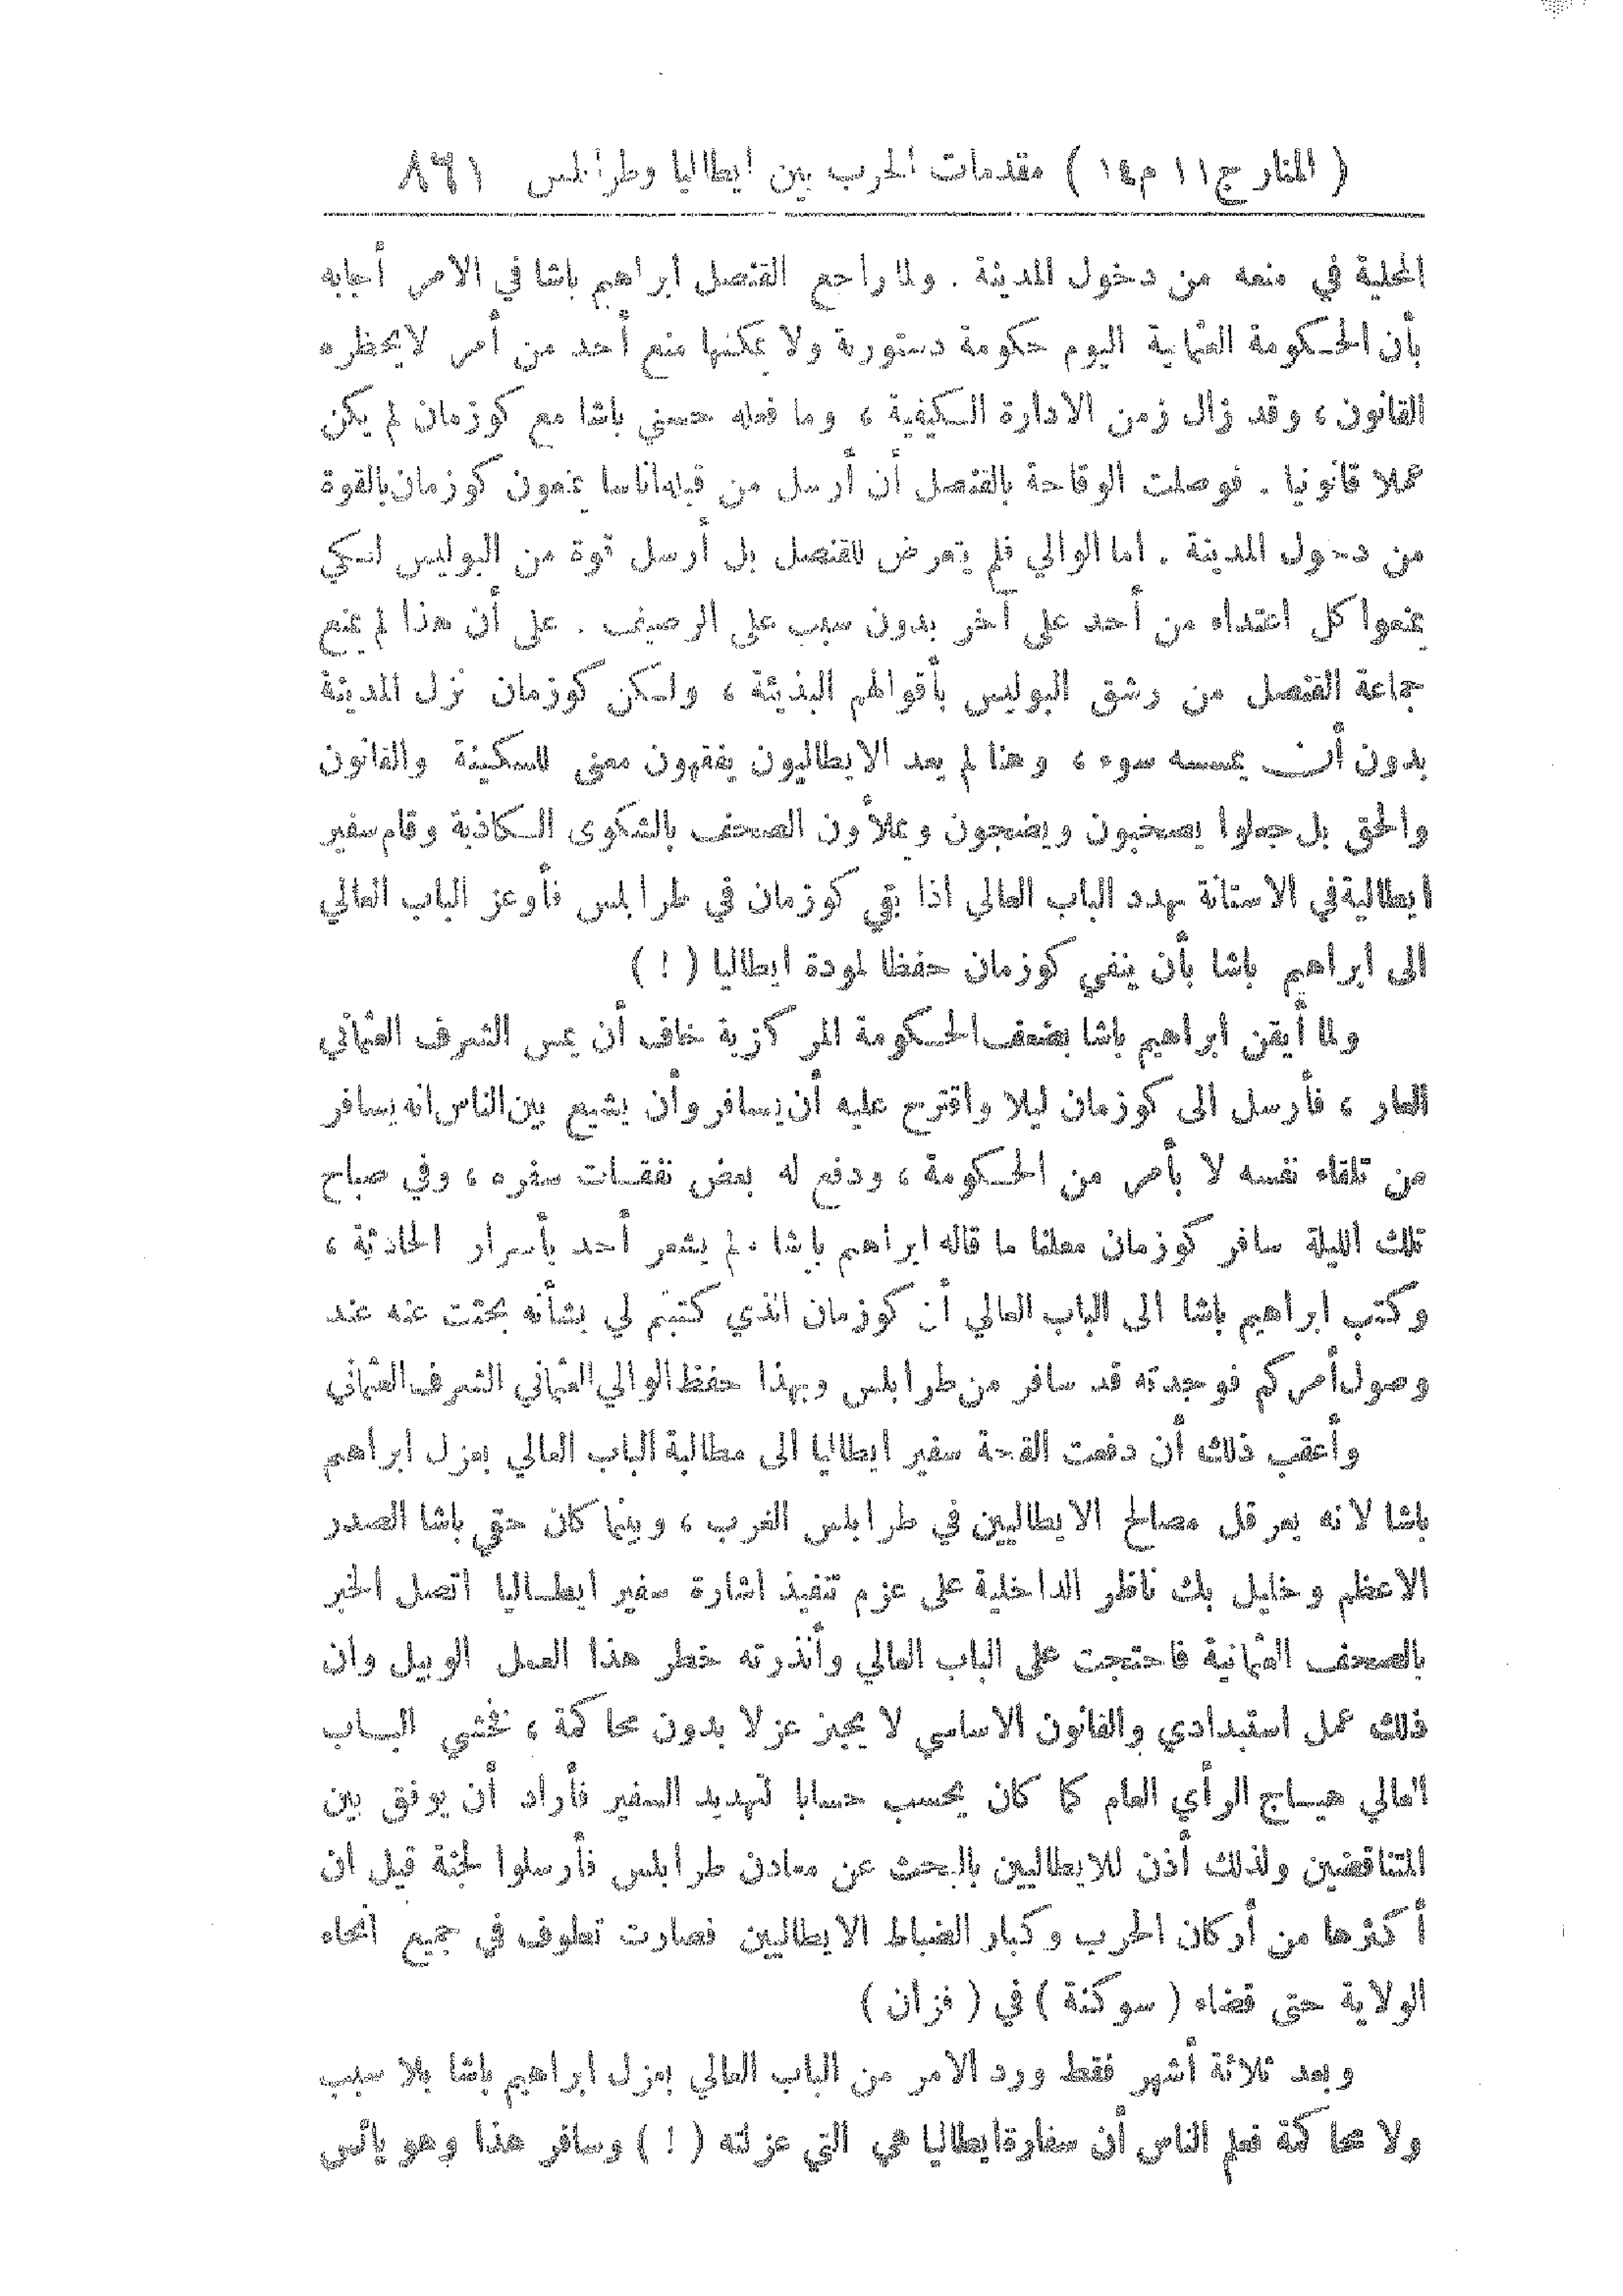 ( المنار ج ١١ م ١٤ ) مقدمات الحرب بين ايطاليا وطرابلس ٨٦١
المحلية في منعه من دخول المدينة . ولما راجع القنصل ابراهيم باشا في الامر أجابه
بأن الحكومة العثمانية اليوم حكومة دستورية ولا يمكنها منع أحد من أمر لا يحظره
القانون ، وقد زال زمن الادارة الكيفية ، وما فعله حسني باشا مع كوزمان لم يكن
عملا قانونيا . فوصلت الوقاحة بالقنصل أن أرسل من قبله اناسا يمنعون كوزمان بالقوة
من دخول المدينة . اما الوالي فلم يتعرض للقنصل بل أرسل قوة من البوليس لكي
يمنعوا كل اعتداء من أحد على آخر بدون سبب على الرصيف . على أن هذا لم يمنع
جماعة القنصل من رشق البوليس بأقوالهم البذيئة ، ولكن كوزمان نزل المدينة
بدون أن يمسسه سوء ، وهنا لم يعد الايطاليون يفقهون معنى للسكينة والقانون
والحق بل جعلوا يصخبون ويضجون ويملأون الصحف بالشكوى الكاذبة وقام سفير
ايطالية في الاستانة يهدد الباب العالي اذا بقي كوزمان في طرابلس فأوعز الباب العالي
الى ابراهيم باشا بأن ينفي كوزمان حفظا لمودة ايطاليا ( ! )
ولما أيقن ابراهيم باشا بضعف الحكومة المركزية خاف أن يمس الشرف العثماني
العار ، فأرسل الى كوزمان ليلا واقترح عليه أن يسافر وأن يشيع بين الناس انه يسافر
من تلقاء نفسه لا بأمر من الحكومة ، ودفع له بعض نفقات سفره ، وفي صباح
تلك الليلة سافر كوزمان معلنا ما قاله ابراهيم باشا . لم يشعر أحد بأسرار الحادثة ،
وكتب ابراهيم باشا الى الباب العالي أن كوزمان الذي كتبتم لي بشأنه بحثت عنه عند
وصول أمركم فوجدته قد سافر من طرابلس وبهذا حفظ الوالي العثماني الشرف العثماني
وأعقب ذلك أن دفعت القحة سفير ايطاليا الى مطالبة الباب العالي بعزل ابراهيم
باشا لانه يعرقل مصالح الايطاليين في طرابلس الغرب ، وبينما كان حقي باشا الصدر
الاعظم وخليل بك ناظر الداخلية على عزم تنفيذ اشارة سفير ايطاليا اتصل الخبر
بالصحف العثمانية فاحتجت على الباب العالي وأنذرته خطر هذا العمل الوبيل وان
ذلك عمل استبدادي والقانون الاساسي لا يجيز عزلا بدون محاكمة ، فخشي الباب
العالي هياج الرأي العام كما كان يحسب حسابا لتهديد السفير فأراد أن يوفق بين
المتناقضين ولذلك أذن للايطاليين بالبحث عن معادن طرابلس فأرسلوا لجنة قيل ان
أكثرها من أركان الحرب وكبار الضباط الايطاليين فصارت تطوف في جميع انحاء
الولاية حتى قضاء ( سوكنة ) في ( فزان )
وبعد ثلاثة أشهر فقط ورد الامر من الباب العالي بعزل ابراهيم باشا بلا سبب
ولا محاكمة فعلم الناس أن سفارة ايطاليا هي التي عزلته ( ! ) وسافر هذا وهو يائس